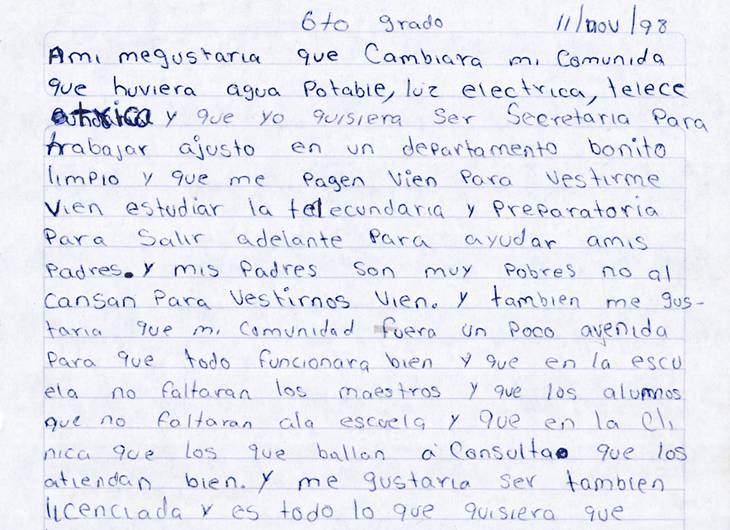 6to grado 11/nov/98
Ami megustaria que Cambiara mi Comunida
que huviera agua Potable, luz electrica, telece
y que yo quisiera Ser Secretaria Para
trabajar ajusto en un departamento bonito
limpio y que me Pagen Vien Para Vestirme
Vien estudiar la telecundaria y Preparatoria
Para Salir adelante Para ayudar amis
Padres. y mis Padres Son muy Pobres no al
Cansan Para Vestirnos Vien. y tambien me gus-
taria que mi Comunidad fuera un Poco avenida
Para que todo funcionara bien y que en la escu
ela no faltaran los maestros y que los alumnos
que no faltaran ala escuela y que en la Cli
nica que los que ballan a Consulta que los
atiendan bien. y me gustaria Ser tambien
licenciada y es todo lo que quisiera que